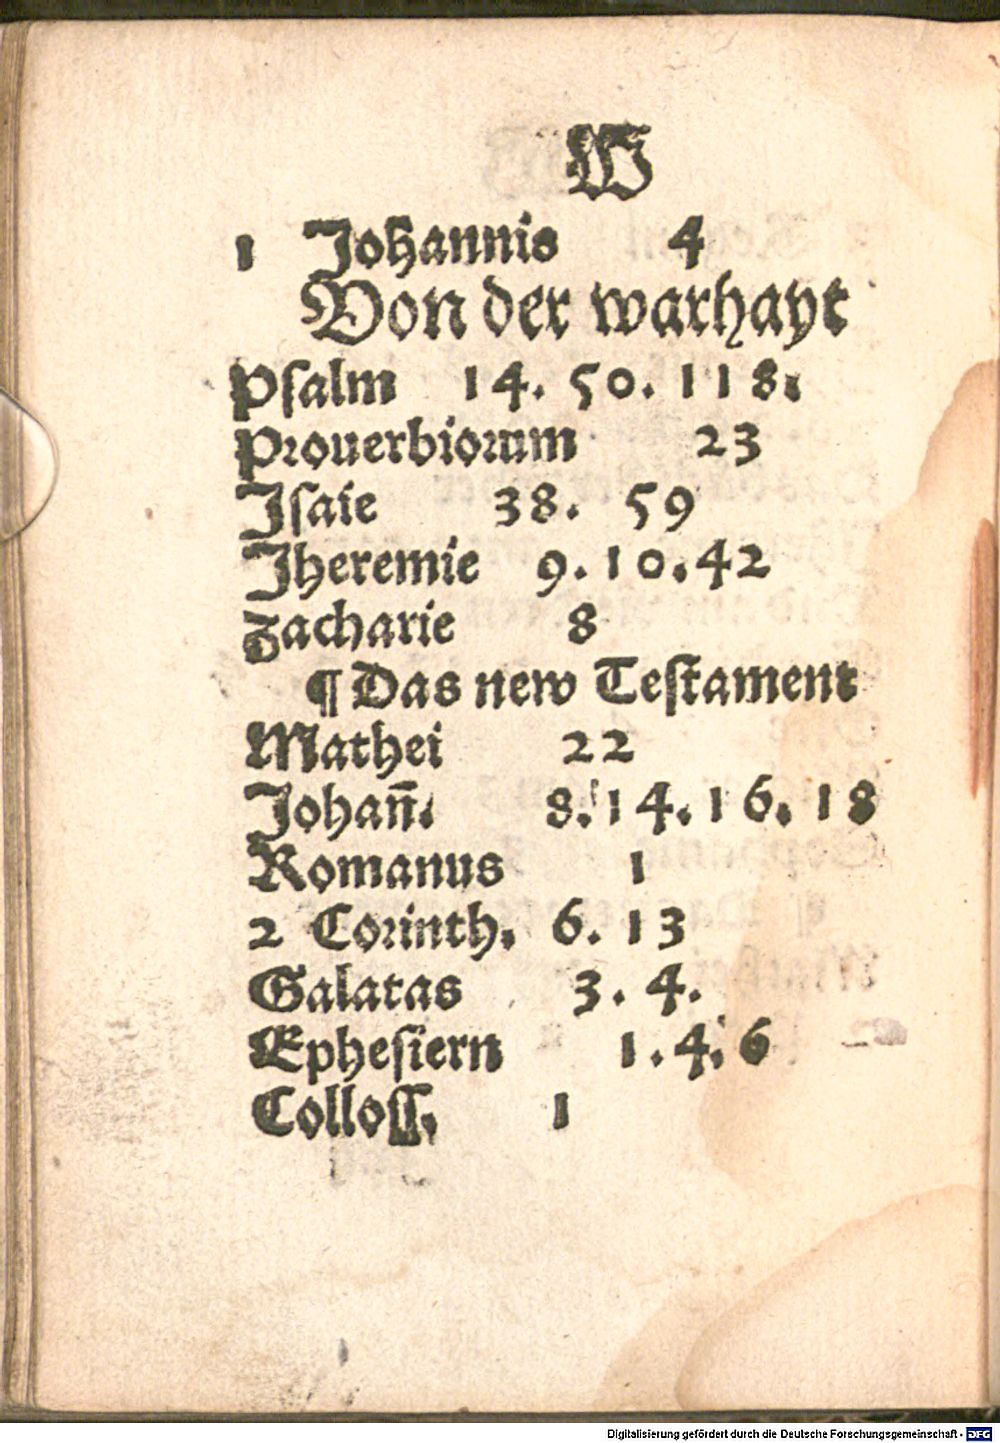 W
1 Johannis 4
Von der warhayt
Psalm 14. 50. 118.
Prouerbiorum 23
Jsaie 38. 59
Jheremie 9. 10. 42
Zacharie 8
¶ Das new Testament
Mathei 22
Johan̄. 8. 14. 16. 18
Romanus 1
2 Corinth. 6. 13
Galatas 3. 4.
Ephesiern 1. 4. 6
Colloss. 1
Digitalisierung gefördert durch die Deutsche Forschungsgemeinschaft - DFG